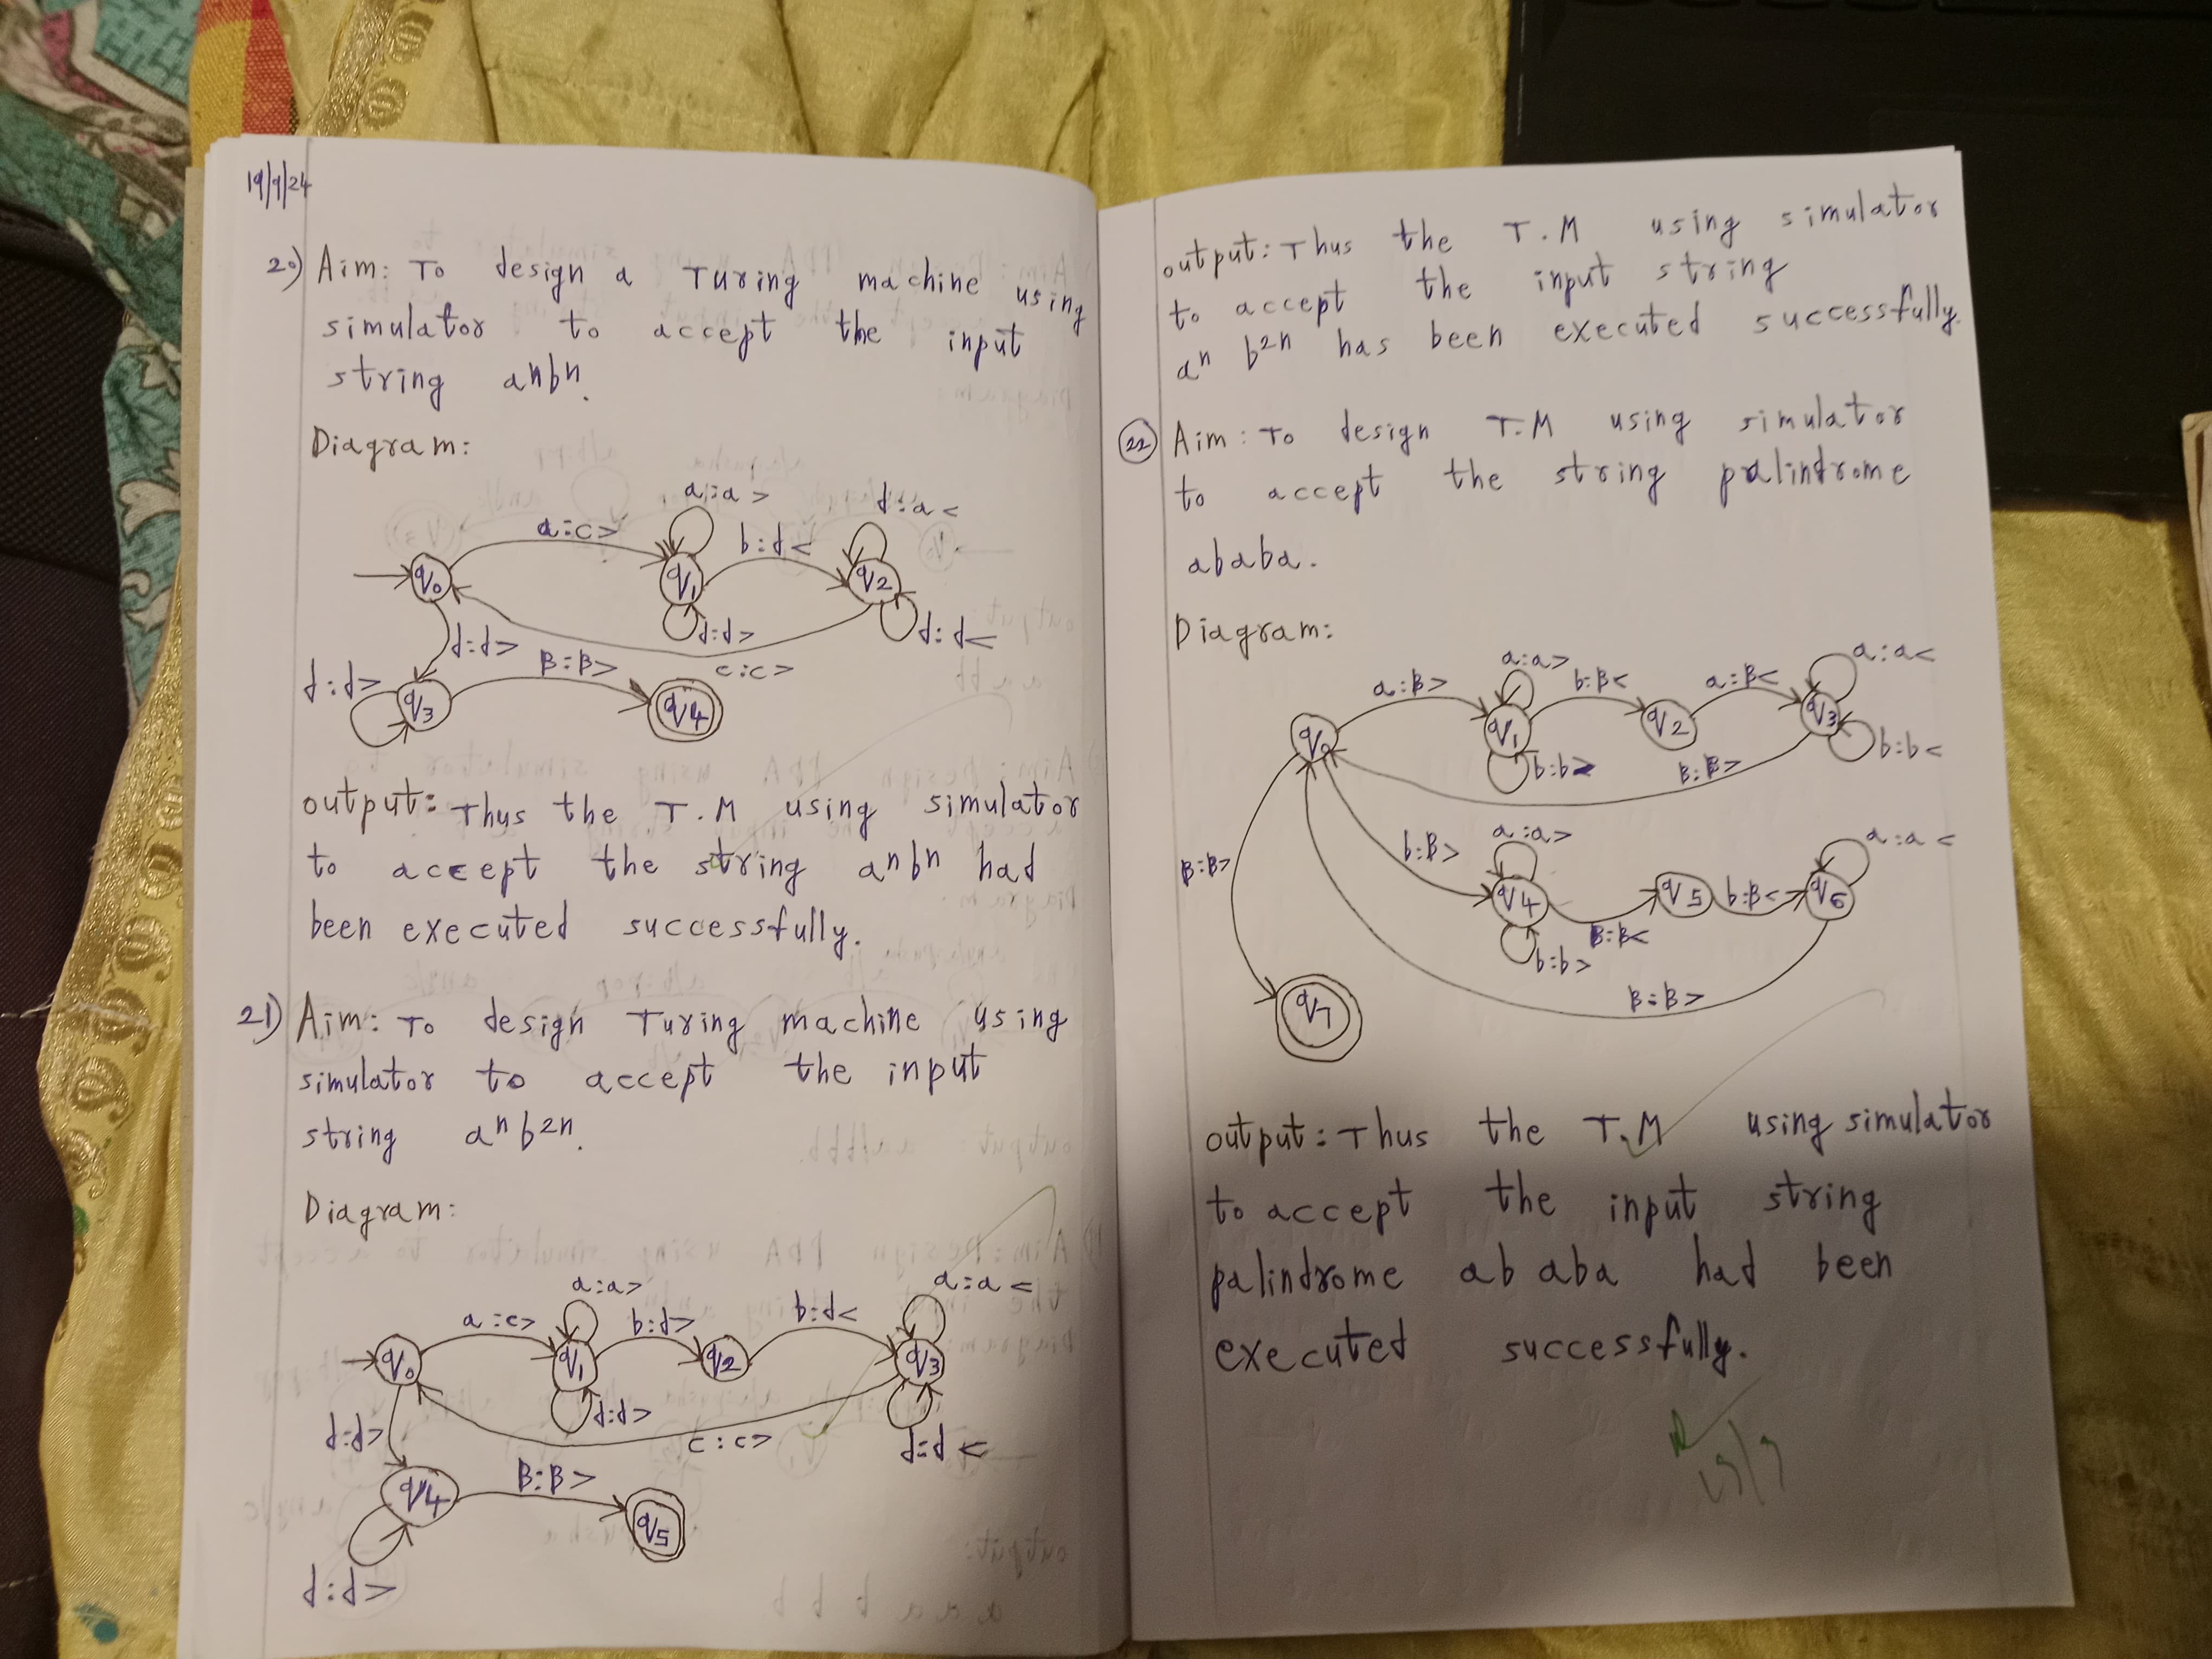 19/9/24
20) Aim: To design a Turing machine using
simulator to accept the input
string aⁿbⁿ.
Diagram:
a:a >
d:a <
a:c>
b:d<
q₀
q₁
q₂
d:d>
d:d<
d:d>
B:B>
c:c>
d:d>
q₃
q₄
output: Thus the T.M using simulator
to accept the string aⁿbⁿ had
been executed successfully.
21) Aim: To design Turing machine using
simulator to accept the input
string aⁿb²ⁿ.
Diagram:
a:a>
a:a<
a:c>
b:d>
b:d<
q₀
q₁
q₂
q₃
d:d>
d:d>
c:c>
d:d<
B:B>
q₄
q₅
d:d>
output: Thus the T.M using simulator
to accept the input string
aⁿ b²ⁿ has been executed successfully.
22 Aim: To design T.M using simulator
to accept the string palindrome
ababa.
Diagram:
a:a>
a:a<
a:B>
b:B<
a:B<
q₁
q₂
q₃
b:b>
B:B>
b:b<
a:a>
a:a<
B:B>
b:B>
q₄
q₅
b:B<
q₆
B:B<
b:b>
B:B>
q₇
output: Thus the T.M using simulator
to accept the input string
palindrome ab aba had been
executed successfully.
19/9